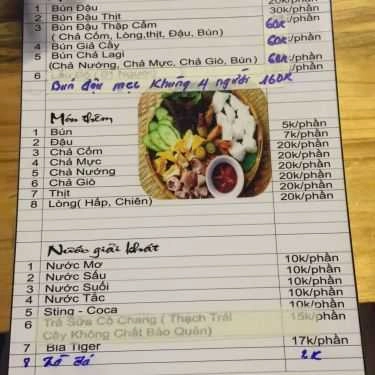 20k/phần
1 Bún Đậu
30k/phần
2 Bún Đậu Thịt
k/phần
3 Bún Đậu Thập Cẩm 60k /phần
( Chả Cốm, Lòng,thịt, Đậu, Bún)
4 Bún Giả Cầy 60k /phần
5 Bún Chả Lagi 60k /phần
(Chả Nướng, Chả Mực, Chả Giò, Bún)
6
Bún đậu mẹt khủng 4 người 160K
Món thêm
1 Bún 5k/phần
2 Đậu 7k/phần
3 Chả Cốm 20k/phần
4 Chả Mực 20k/phần
5 Chả Nướng 20k/phần
6 Chả Giò 20k/phần
7 Thịt 20k/phần
8 Lòng( Hấp, Chiên) 20k/phần
Nước giải khát
1 Nước Mơ 10k/phần
2 Nước Sấu 10k/phần
3 Nước Suối 10k/phần
4 Nước Tắc 10k/phần
5 Sting - Coca 10k/phần
6 Trà Sữa Cô Chang ( Thạch Trái 15k/phần
Cây Không Chất Bảo Quản)
7 Bia Tiger 17k/phần
8 Trà Đá 2K